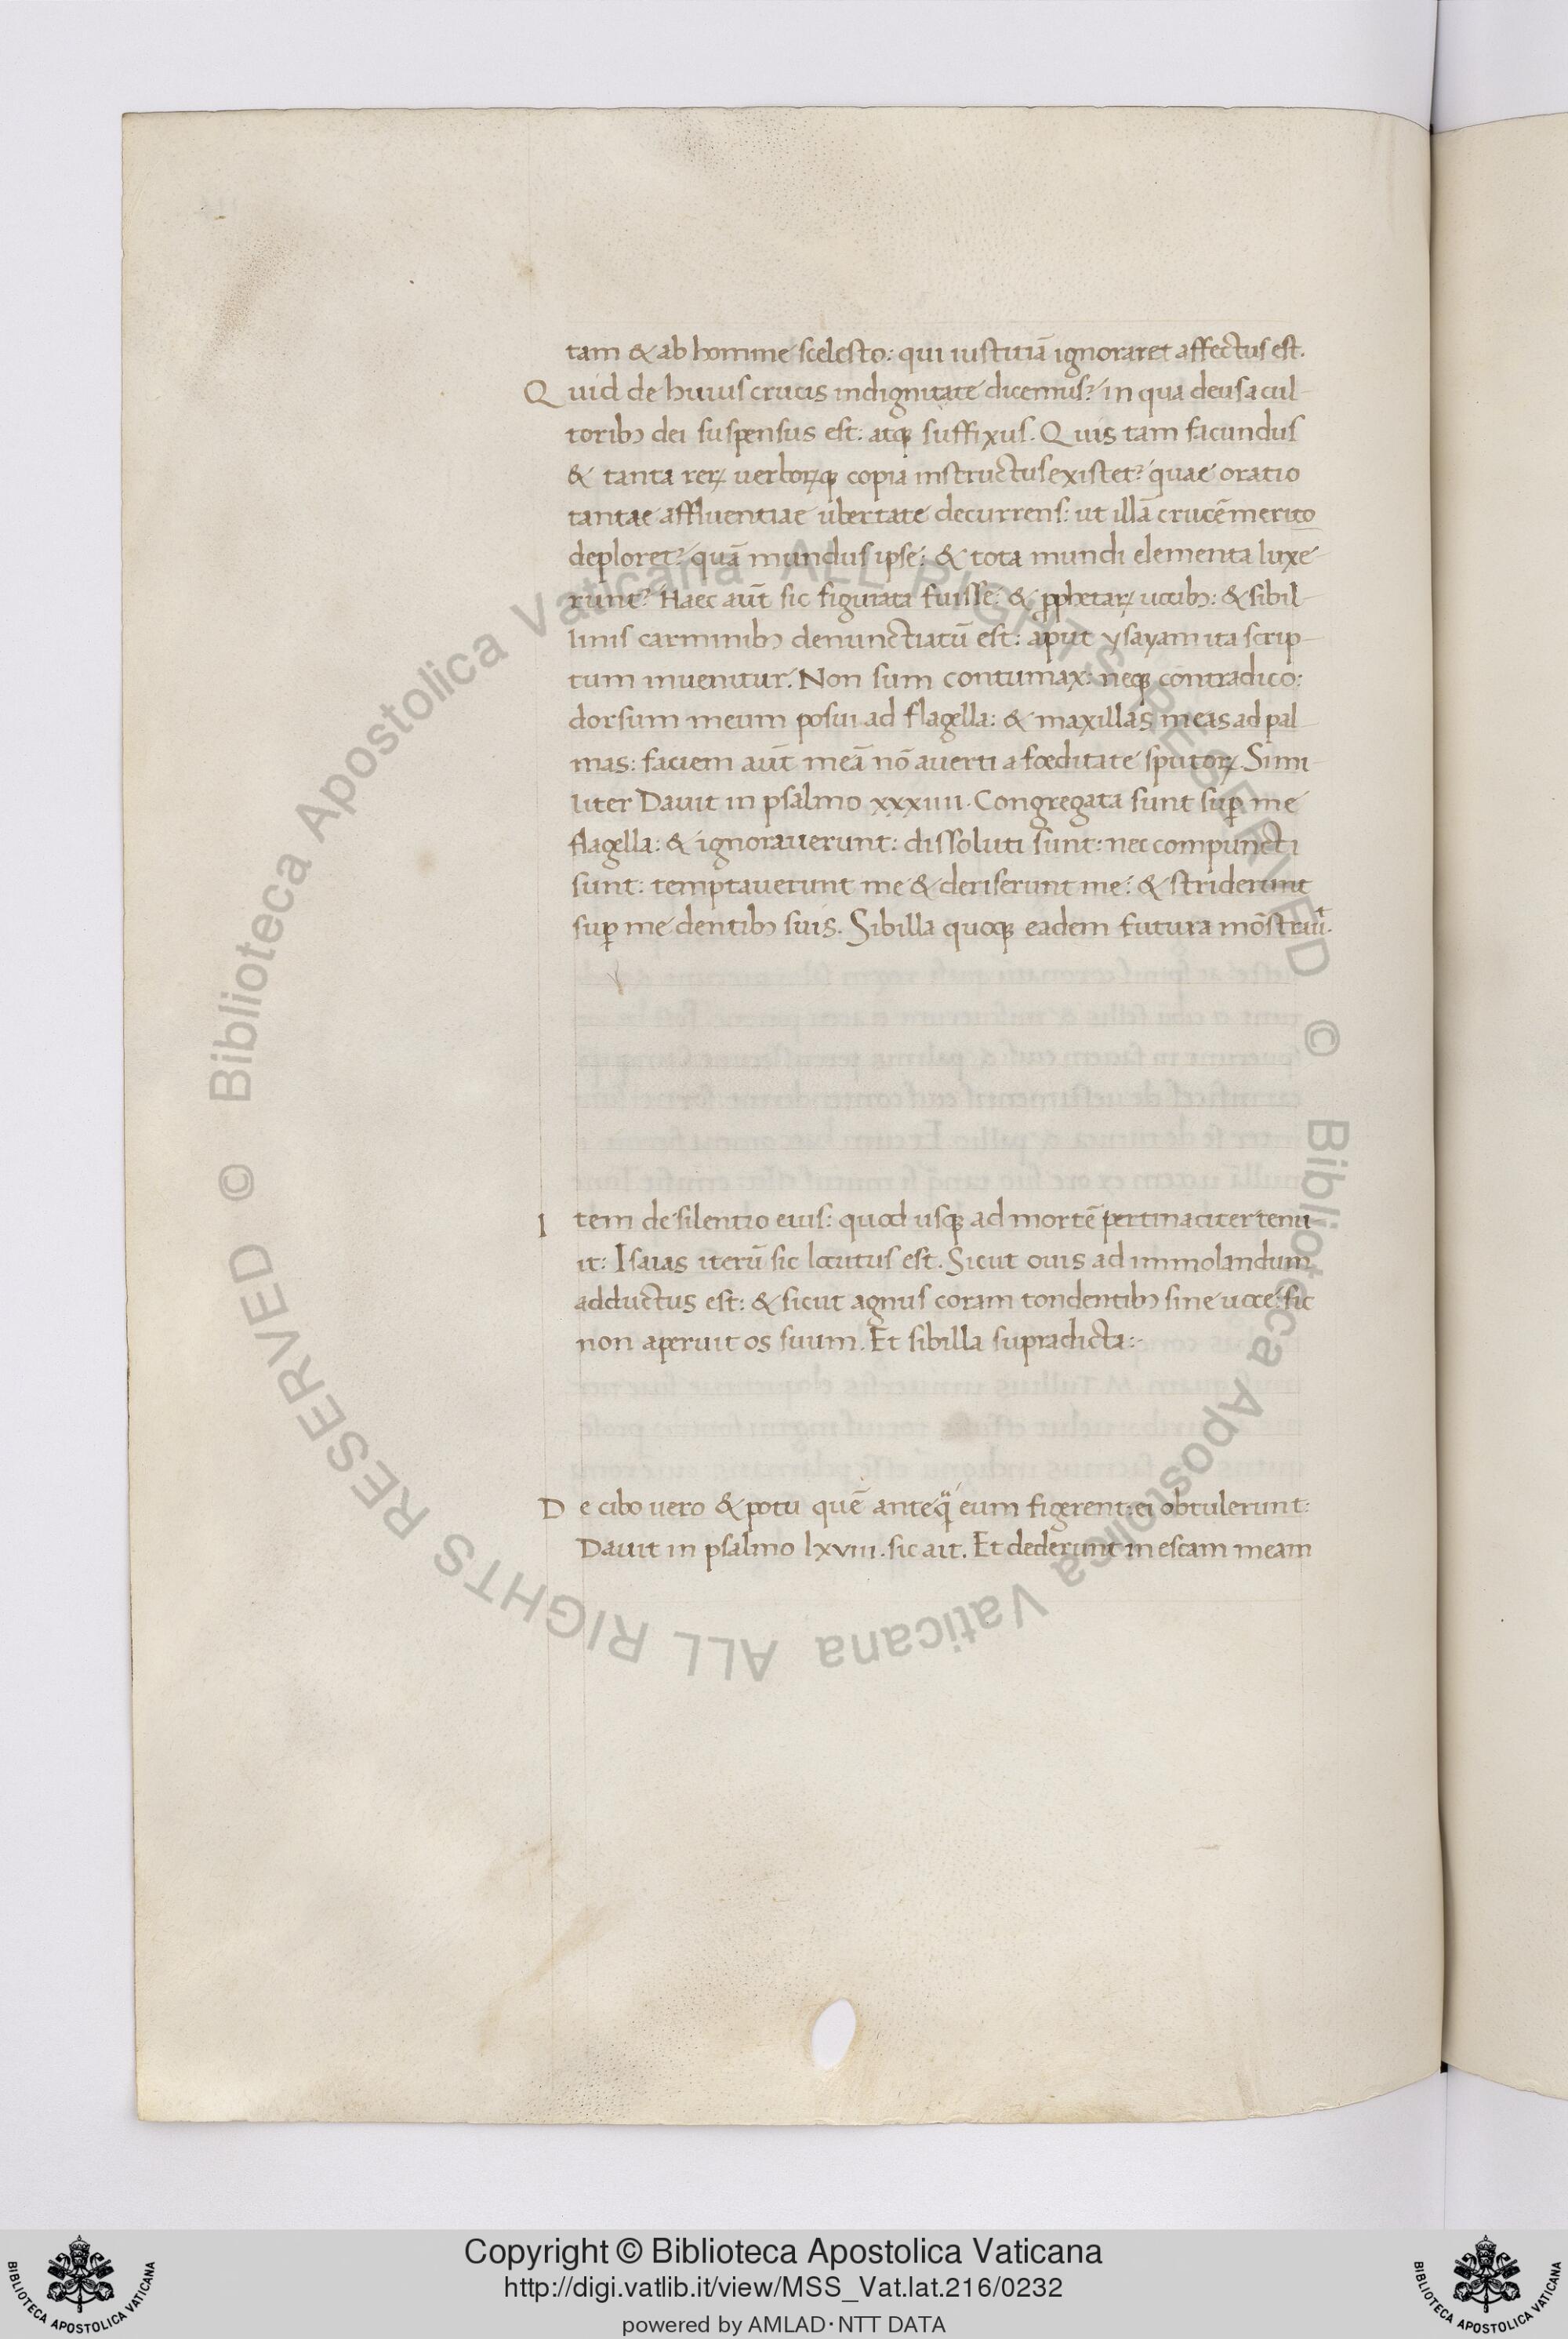 tam & ab homine scelesto: qui iustitiā ignoraret affectus est.
Quid de huius crucis indignitate dicemus? in qua deus a cul-
toribꝫ dei suspensus est: atqꝫ suffixus. Quis tam facundus
& tanta rerꝝ uerborꝝqꝫ copia instructus existet? quae oratio
tantae affluentiae ubertate decurrens: ut illā crucē merito
deploret? quā mundus ipse: & tota mundi elementa luxe-
runt? Haec aūt sic figurata fuisse: & ꝓphetarꝝ uocibꝫ: & sibil-
linis carminibꝫ denunctiatū est: aput ysayam ita scrip-
tum inuenitur. Non sum contumax: neqꝫ contradico:
dorsum meum posui ad flagella: & maxillas meas ad pal-
mas: faciem aūt meā nō auerti a foeditate sputorꝝ. Simi-
liter Dauit in psalmo xxxiiii. Congregata sunt suꝑ me
flagella: & ignorauerunt: dissoluti sunt: nec compuncti
sunt: temptauerunt me & deriserunt me: & striderunt
suꝑ me dentibꝫ suis. Sibilla quoqꝫ eadem futura mōstrauit.
Item de silentio eius: quod usqꝫ ad mortē pertinaciter tenu
it: Isaias iterū sic locutus est. Sicut ouis ad immolandum
adductus est: & sicut agnus coram tondentibꝫ sine uoce: sic
non aperuit os suum. Et sibilla supradicta:-
De cibo uero & potu quē anteq̃ eum figerent: ei obtulerunt:
Dauit in psalmo lxviii. sic ait. Et dederunt in escam meam
© Biblioteca Apostolica Vaticana ALL RIGHTS RESERVED © Biblioteca Apostolica Vaticana ALL RIGHTS RESERVED
Copyright © Biblioteca Apostolica Vaticana
http://digi.vatlib.it/view/MSS_Vat.lat.216/0232
powered by AMLAD·NTT DATA
BIBLIOTECA APOSTOLICA VATICANA
BIBLIOTECA APOSTOLICA VATICANA